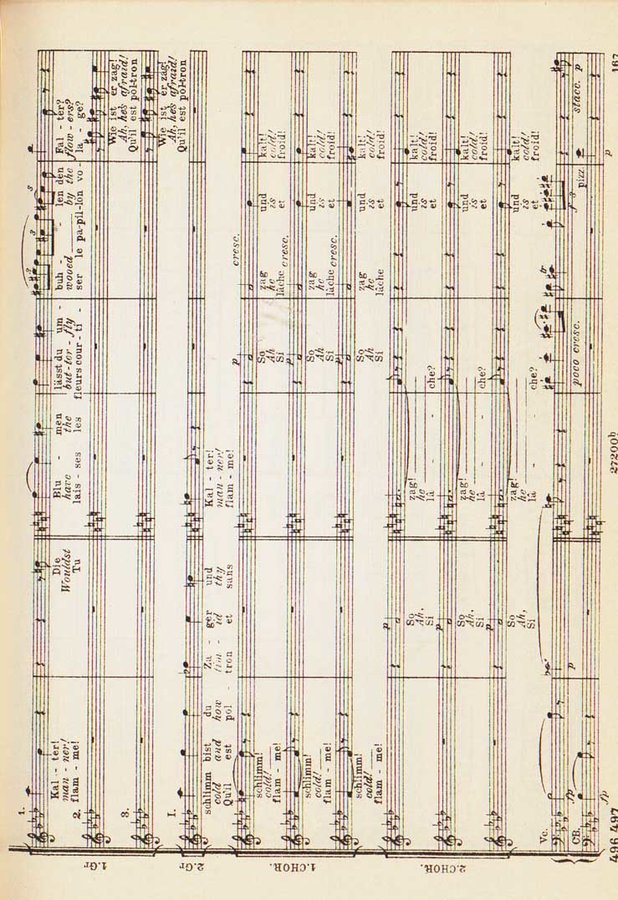 1.
1.Gr
Kal - ter! Die Blu - men lässt du um - buh - len den Fal - ter?
man - ner! Wouldst have the but-ter - fly wooed by the flow - ers?
flam - me! Tu lais - ses les fleurs cour - ti - ser le pa-pil-lon vo - la - ge?
2.
Wie ist er zag!
Ah, he's afraid!
Qu'il est poltron
3.
Wie ist er zag!
Ah, he's afraid!
Qu'il est poltron
I.
2.Gr
schlimm bist du Za - ger und Kal - ter!
cold and how tim - id thy man - ner!
Qu'il est pol - tron et sans flam - me!
p cresc.
1.CHOR.
schlimm! So zag und kalt!
cold! Ah he is cold!
flam - me! Si lâche et froid!
p cresc.
schlimm! So zag und kalt!
cold! Ah he is cold!
flam - me! Si lâche et froid!
p cresc.
schlimm! So zag und kalt!
cold! Ah he is cold!
flam - me! Si lâche et froid!
p
2.CHOR.
So zag! und kalt!
Ah, he is cold!
Si lâ - che? et froid!
p
So zag! und kalt!
Ah, he is cold!
Si lâ - che? et froid!
p
So zag! und kalt!
Ah, he is cold!
Si lâ - che? et froid!
Vc.
f
pizz.
fp p poco cresc. stacc. p
CB.
fp p
496.497 27200b 167